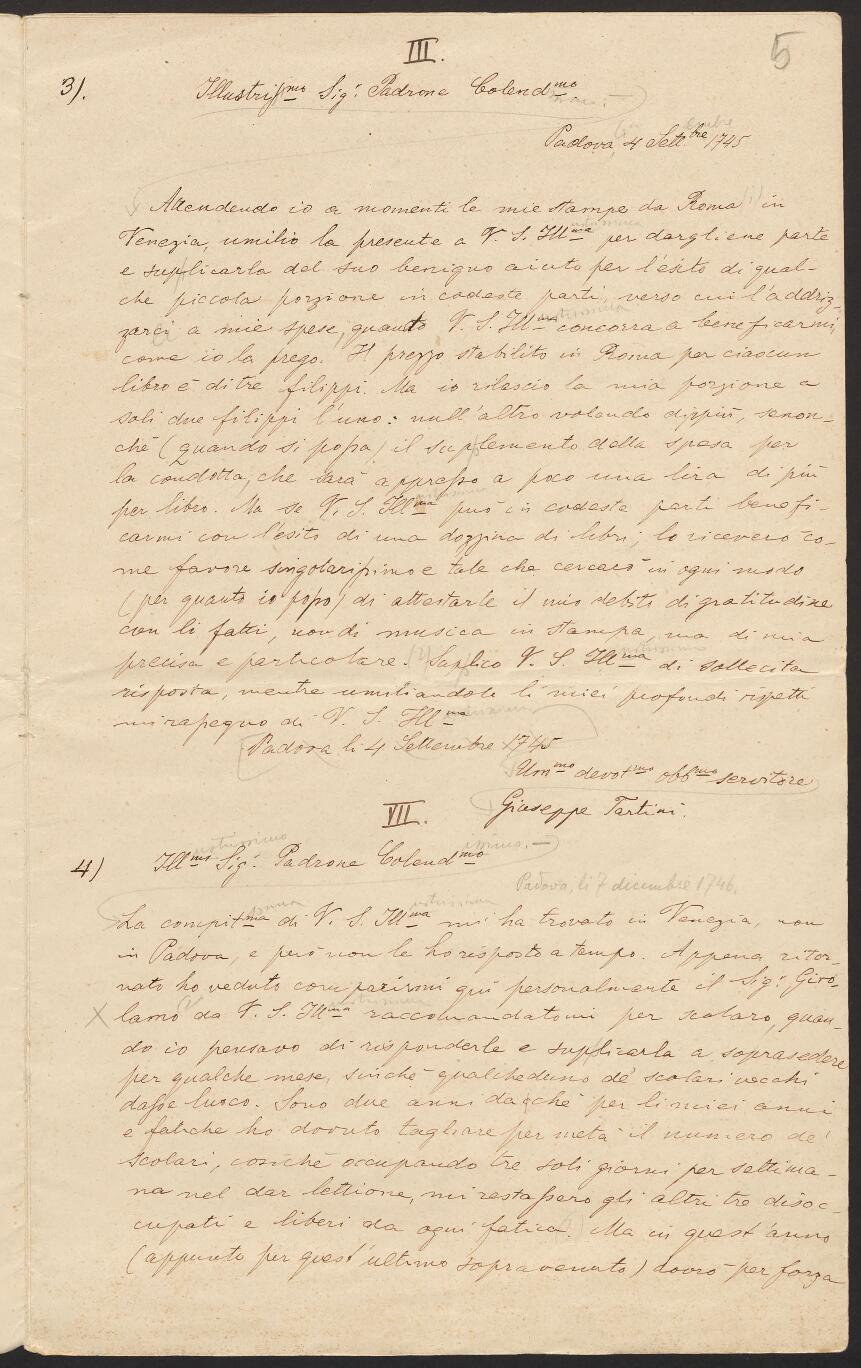 III.
5
3).
Illustriss.mo Sig.r Padrone Colend.mo
Padova, 4 Sett.bre 1745
Attendendo io a momenti le mie stampe da Roma (1) in
Venezia, umilio la presente a V. S. Ill.ma per dargliene parte
e suplicarla del suo benigno aiuto per l'esito di qual-
che piccola porzione in codeste parti, verso cui l'addriz-
zarei a mie spese, quando V. S. Ill.ma concorra a beneficarmi,
come io la prego. Il prezzo stabilito in Roma per ciascun
libro è di tre filippi. Ma io rilascio la mia porzione a
soli due filippi l'uno: null'altro volendo dippiù, senon-
ché (quando si possa) il suplemento della spesa per
la condotta, che sarà appresso a poco una lira di più
per libro. Ma se V. S. Ill.ma può in codeste parti benefi-
carmi con l'esito di una dozzina di libri, lo riceverò co-
me favore singolarissimo e tale che cercarò in ogni modo
(per quanto io posso) di attestarle il mio debito di gratitudine
con li fatti, non di musica in stampa, ma di mia
precisa e particolare. Suplico V. S. Ill.ma di sollecita
risposta, mentre umiliandole li miei profondi rispetti
mi rasegno di V. S. Ill.ma
Padova li 4 Settembre 1745
Um.mo devot.mo obb.mo servitore
Giuseppe Tartini.
VII.
4)
Ill.mo Sig.r Padrone Colend.mo. —
Padova, li 7 dicembre 1746.
La compit.ma di V. S. Ill.ma mi ha trovato in Venezia, non
in Padova, e però non le ho risposto a tempo. Appena ritor-
nato ho veduto comparirmi quì personalmente il Sig.r Giro-
lamo da V. S. Ill.ma raccomandatomi per scolaro, quan-
do io pensavo di risponderle e suplicarla a soprasedere
per qualche mese, sinchè qualcheduno de' scolari vecchi
dasse luoco. Sono due anni dacchè per li miei anni
e fatiche ho dovuto tagliare per metà il numero de'
scolari, cosichè occupando tre soli giorni per settima-
na nel dar lettione, mi restassero gli altri tre disoc-
cupati e liberi da ogni fatica. Ma in quest'anno
(appunto per quest'ultimo sopravenuto) dovrò per forza